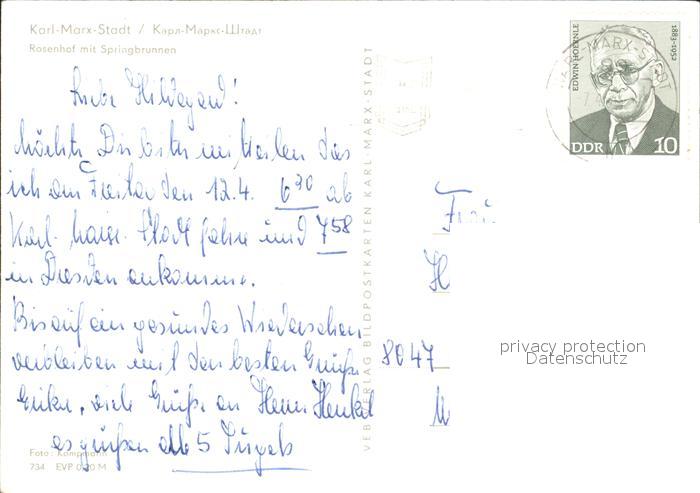 Karl-Marx-Stadt / Карл-Маркс-Штадт
Rosenhof mit Springbrunnen
Liebe Hildegard!
möchte Dir bitte mitteilen das
ich am Freitag den 12.4. 6³⁰ ab
Karl-Marx-Stadt fahre und 7⁵⁸
in Dresden ankomme.
Bis auf ein gesundes Wiedersehen
verbleiben mit den besten Grüße
viele Grüße an Herrn Henkel
es grüßen alle 5
Foto: Kampmann
734 EVP 0,20 M
VEB VERLAG BILDPOSTKARTEN KARL-MARX-STADT
EDWIN HOERNLE
1883-1952
DDR 10
MARX-STADT
Frau
H
8047
privacy protection
Datenschutz